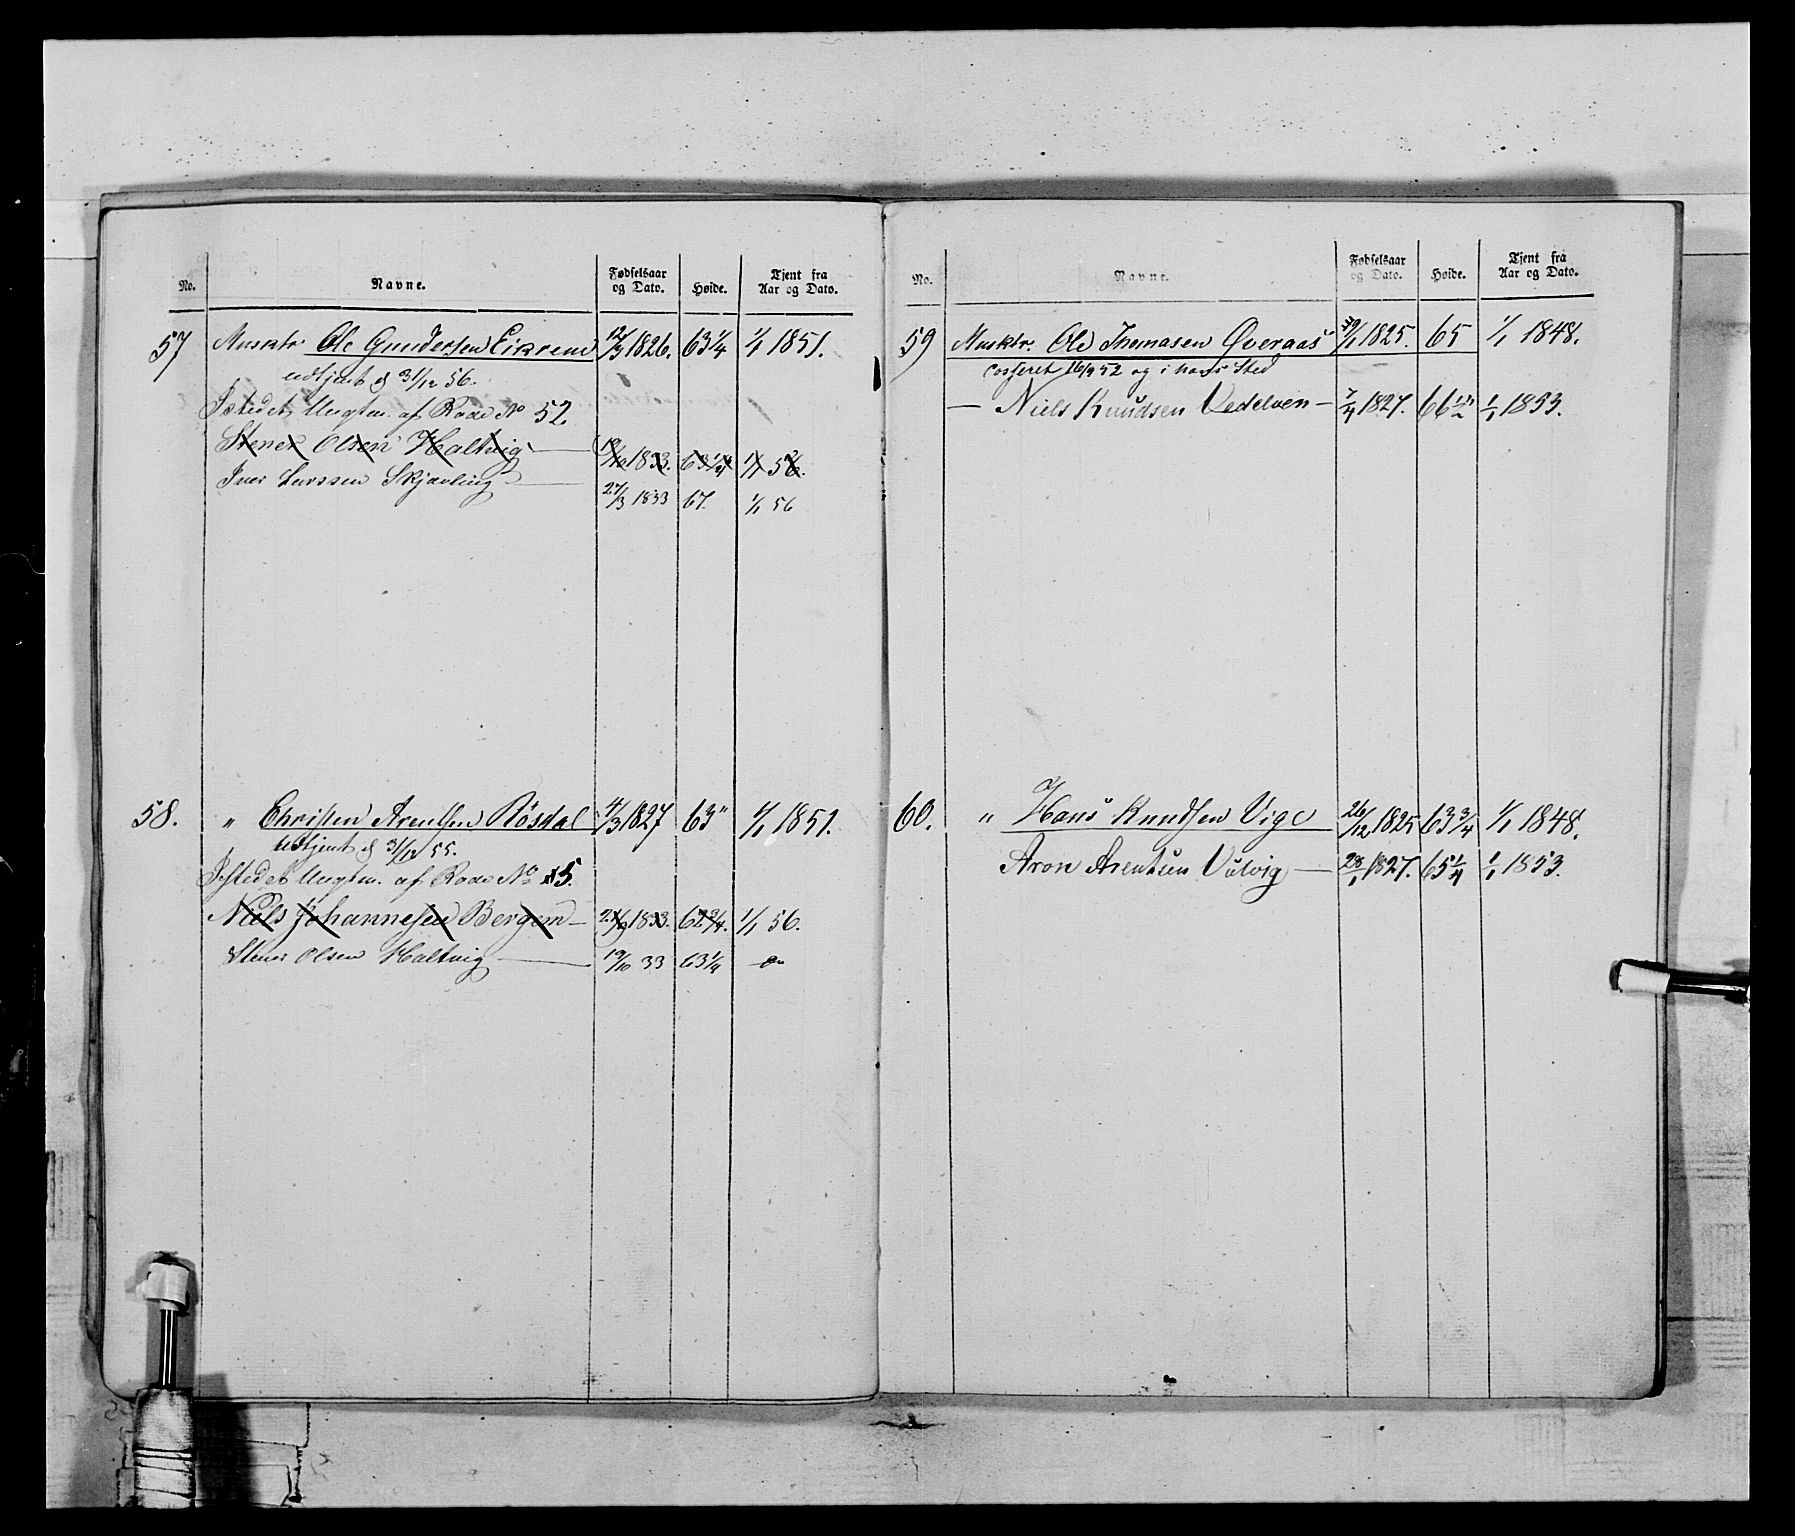 No. Navne. Fødselsaar og Dato. Høide. Tjent fra Aar og Dato.
57 Musktr Ole Gundersen Eikrem 12/3 1826. 63 1/4 1/1 1851.
udtjent d 31/12 56.
Istedet Ungtm. af Rode No 52.
Stener Olsen Haltvig 19/10 1833. 63 1/4 1/1 56.
Iver Larssen Skjævling 27/3 1833 67. 1/1 56
58. " Christen Arentsen Røsdal 4/3 1827 63" 1/1 1851.
Udtjent d 31/12 55.
Istedet Ungtm. af Rode No 5.
Niels Johannesen Bergem 1833. 62 3/4. 1/1 56.
Stener Olsen Haltvig 19/10 33 63 1/4
No. Navne. Fødselsaar og Dato. Høide. Tjent fra Aar og Dato.
59 Musktr. Ole Thomasen Øveraas 1825. 65 1/1 1848.
Casseret 16/9 52 og i hans Sted
— Niels Knudsen Vedelven — 7/4 1827. 66 1/2" 1/1 1853.
60. " Hans Knudsen Vige 26/12 1825 63 3/4 1/1 1848.
Aron Arentsen Vulvig — 28/1 1827. 65 1/4 1/1 1853.